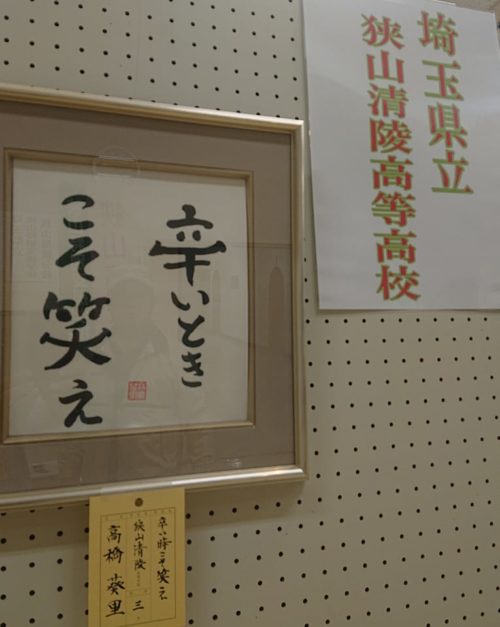 埼玉県立
狭山清陵高等高校
辛いとき
こそ笑え
辛い時こそ笑え
狭山清陵 三
高橋葵里